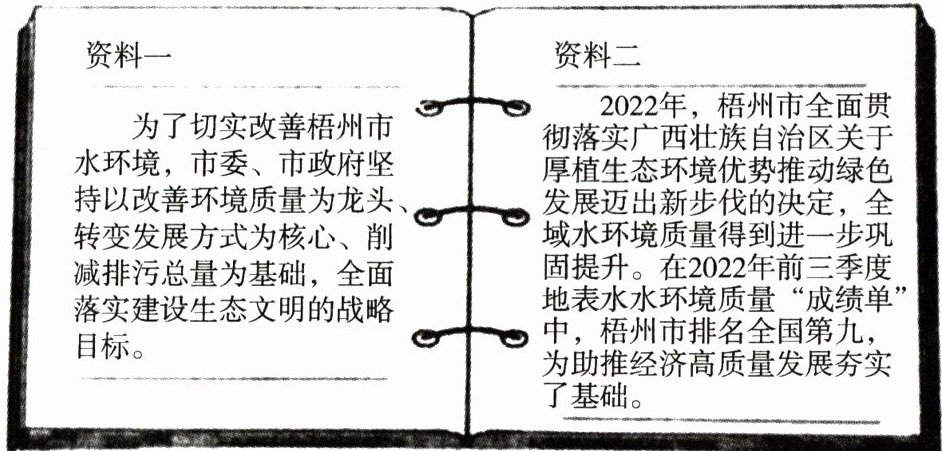 资料一
为了切实改善梧州市
水环境，市委、市政府坚
持以改善环境质量为龙头、
转变发展方式为核心、削
减排污总量为基础，全面
落实建设生态文明的战略
目标。
资料二
2022年，梧州市全面贯
彻落实广西壮族自治区关于
厚植生态环境优势推动绿色
发展迈出新步伐的决定，全
域水环境质量得到进一步巩
固提升。在2022年前三季度
地表水水环境质量“成绩单”
中，梧州市排名全国第九，
为助推经济高质量发展夯实
了基础。